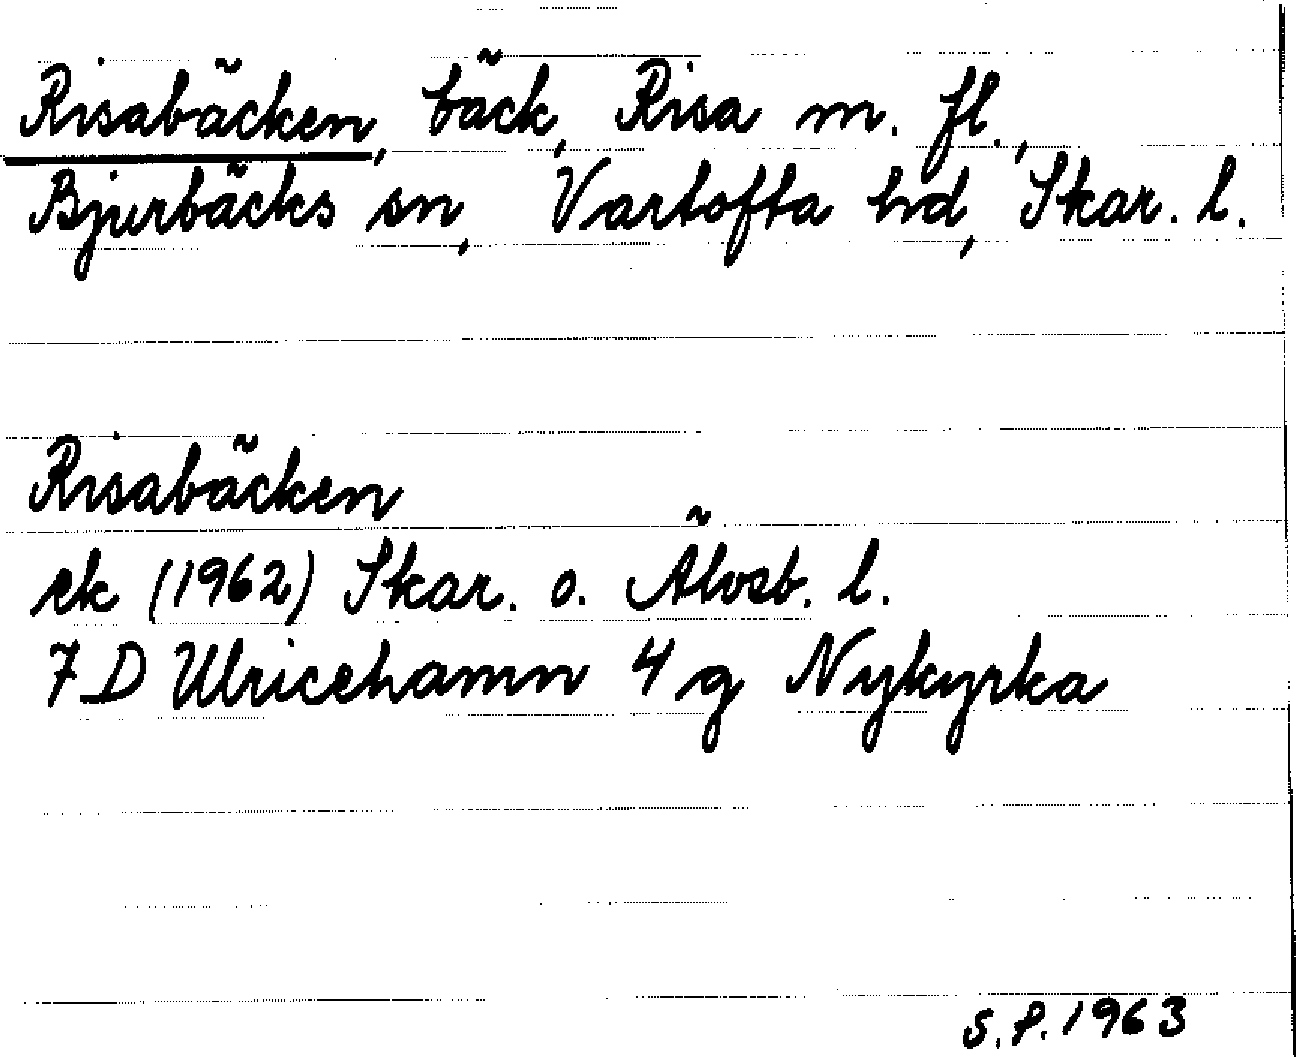 Risabäcken, bäck, Risa m. fl.,
Bjurbäcks sn, Vartofta hd, Skar. l.
Risabäcken
ek (1962) Skar. o. Älvsb. l.
7 D Ulricehamn 4 g Nykyrka
S.P. 1963